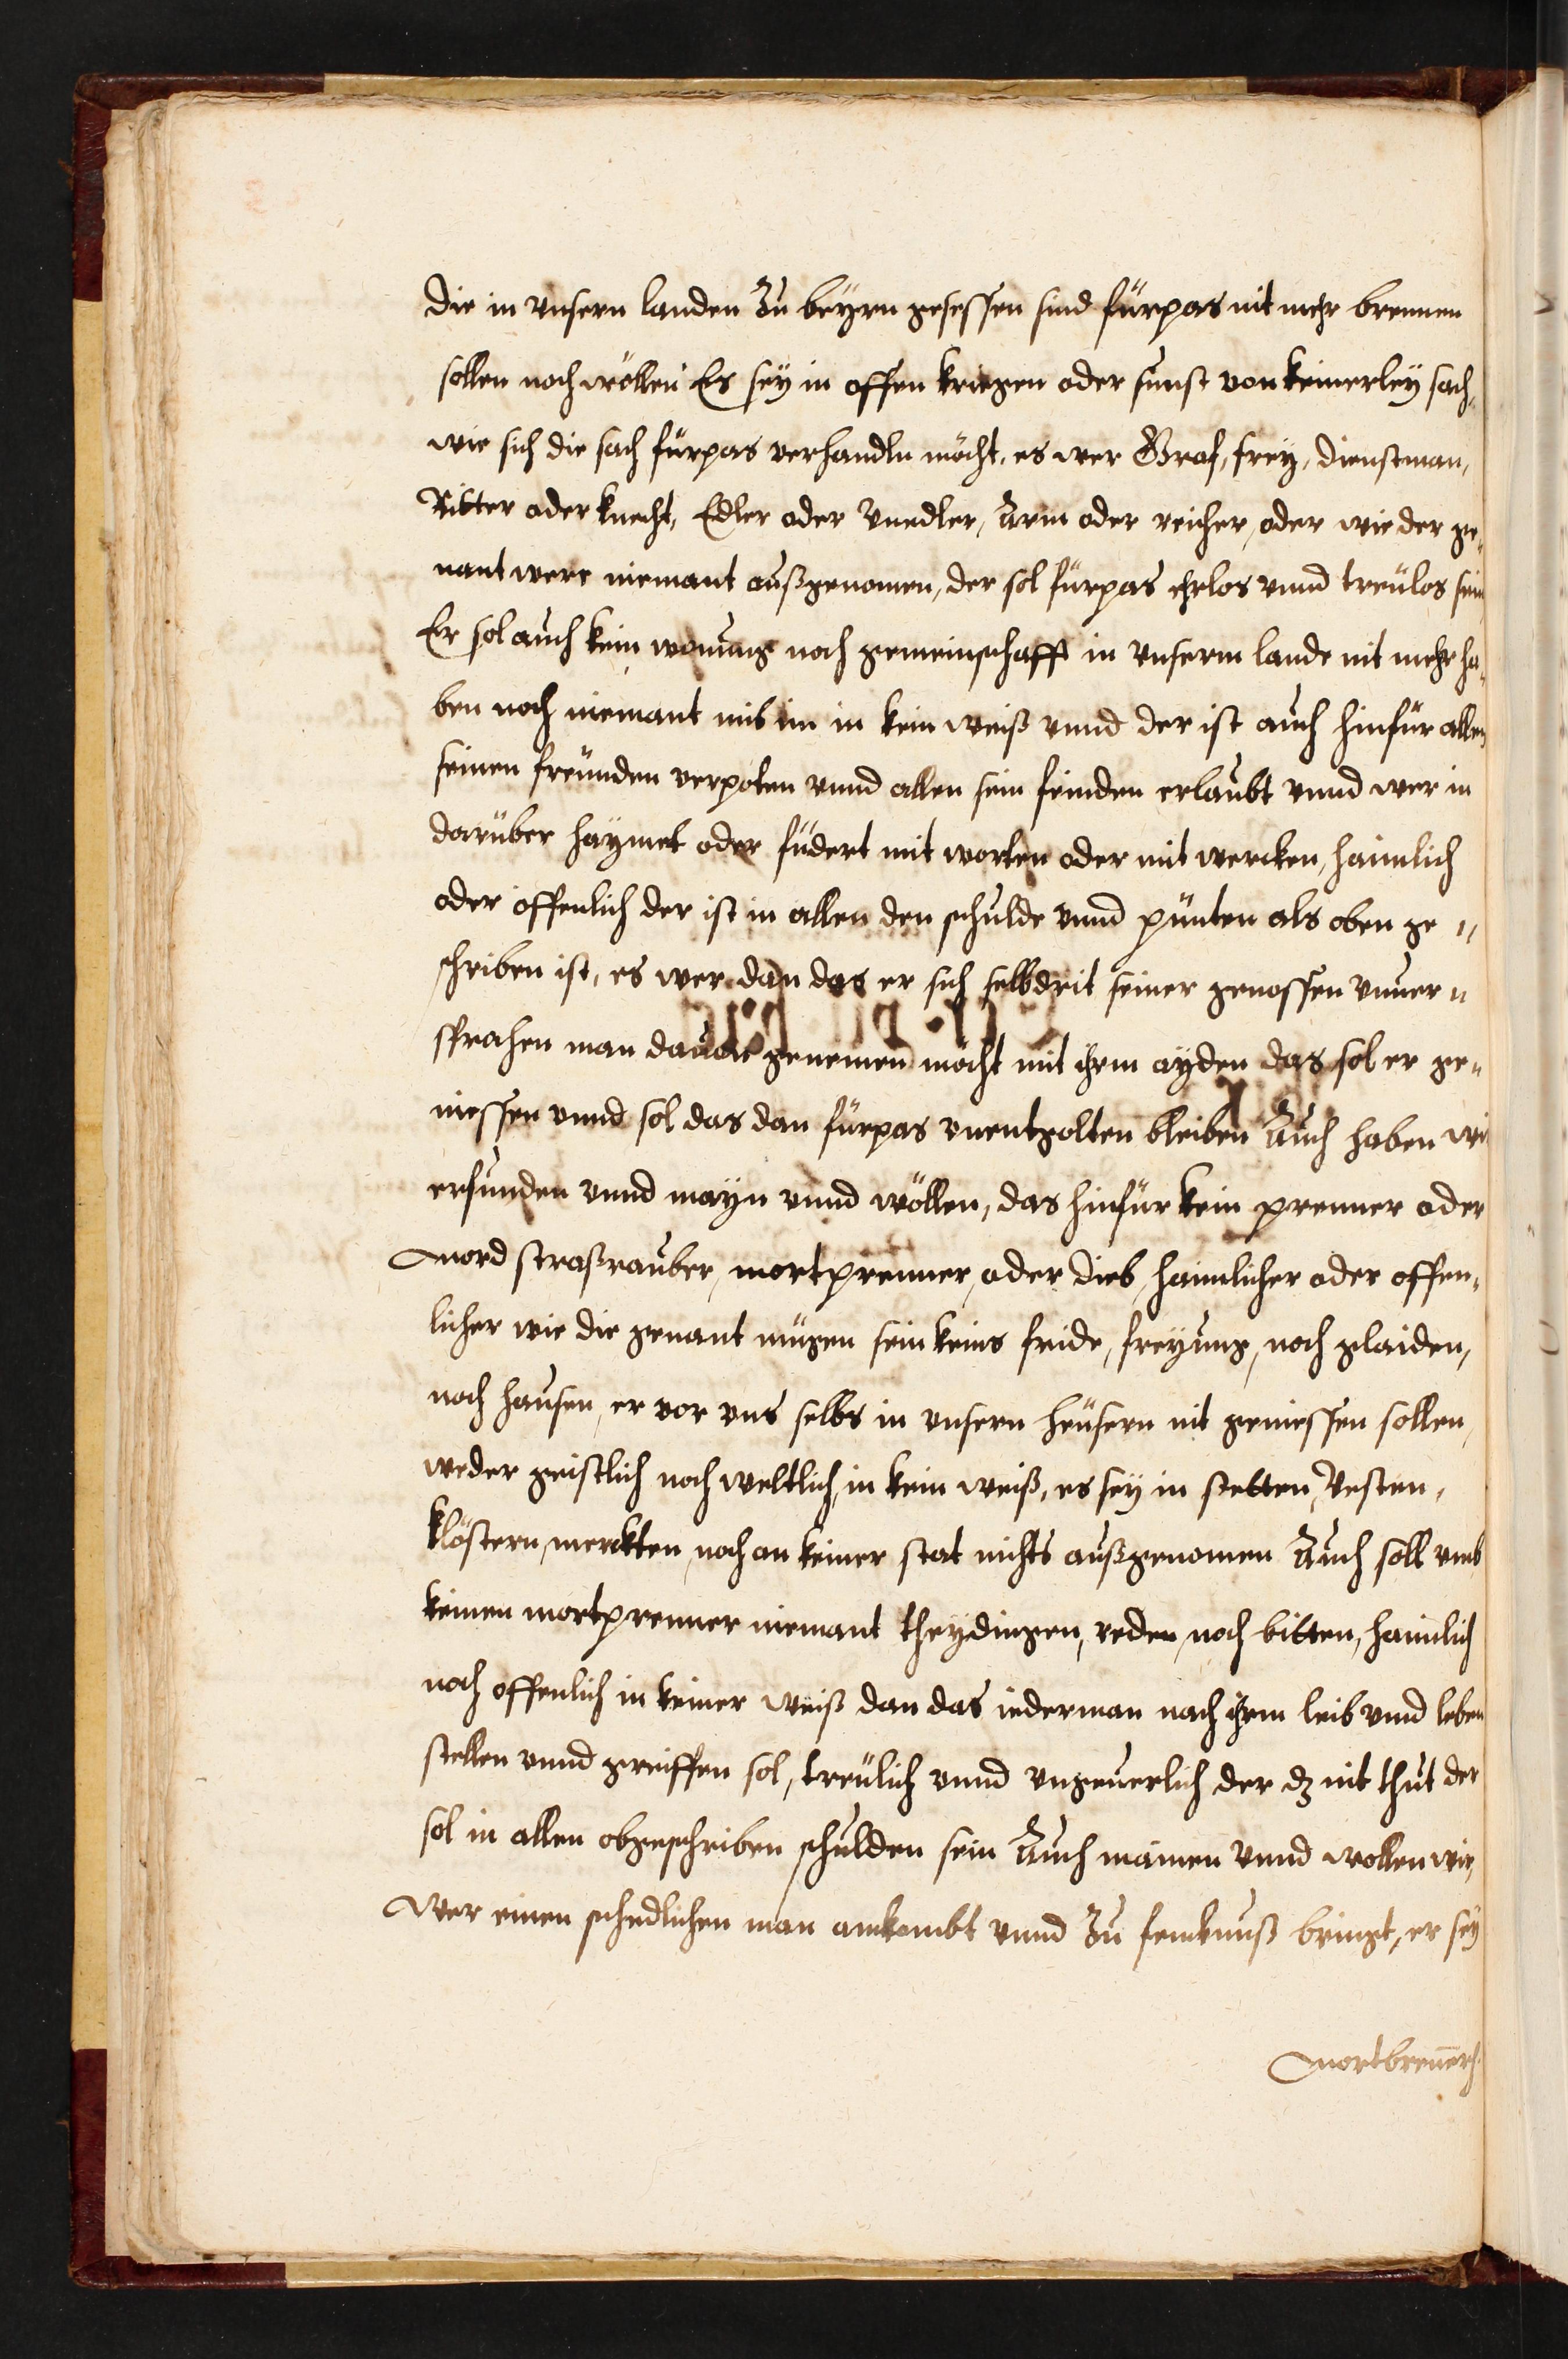 die in vnsern landen Zu beyrn gesessen sind fürpas nit mehr brennen
sollen noch wöllen Es sey in offen kriegen oder sunst von keinerley sach,
wie sich die sach fürpas verhandln möcht, es wer Graf, frey, dienstman,
Ritter oder knecht, Edler oder Vnedler, Arm oder reicher, oder wie der ge,
nant were niemant außgenomen, der sol fürpas ehrlos vnnd treülos sein
Er sol auch kein wonung noch gemeinschafft in vnserm lande nit mehr ha,
ben noch niemant mit im in kein weiß vnnd der ist auch hinfür allen
seinen freünden verpoten vnnd allen sein feinden erlaubt vnnd wer in
darüber haymet oder füdert mit worten oder mit wercken, haimlich
oder öffenlich der ist in allen den schulde vnnd pünten als oben ge "
schriben ist, es wer dan das er sich selbdrit seiner genossen vnuer "
sprochen man dauon genemen möcht mit ihrm ayden das sol er ge "
niessen vnnd sol das dan fürpas vnentgolten bleiben Auch haben wir
erfunden vnnd mayn vnnd wöllen, das hinfür kein prenner oder
Mord straßrauber, mortprenner, oder dieb, haimlicher oder offen,
licher wie die genant mügen sein keins fride, freyung, noch glaiden,
noch hausen, er vor vns selbs in vnsern heüsern nit geniessen sollen,
weder geistlich noch weltlich, in kein weiß, es sey in stetten, Vesten,
klöstern, merckten, noch an keiner stat nichts außgenomen Auch soll vmb
keinen mortprenner niemant theydingen, reden, noch bitten, haimlich
noch offenlich in keiner weiß dan das iederman nach ihrm leib vnnd leben
stellen vnnd greiffen sol, treülich vnnd vngeuerlich der dz nit thut der
sol in allen obgeschriben schulden sein Auch mainen vnnd wollen wir,
Wer einen schedlichen man ankombt vnnd Zu fenknuß bringt, er sey
Mortbrenner